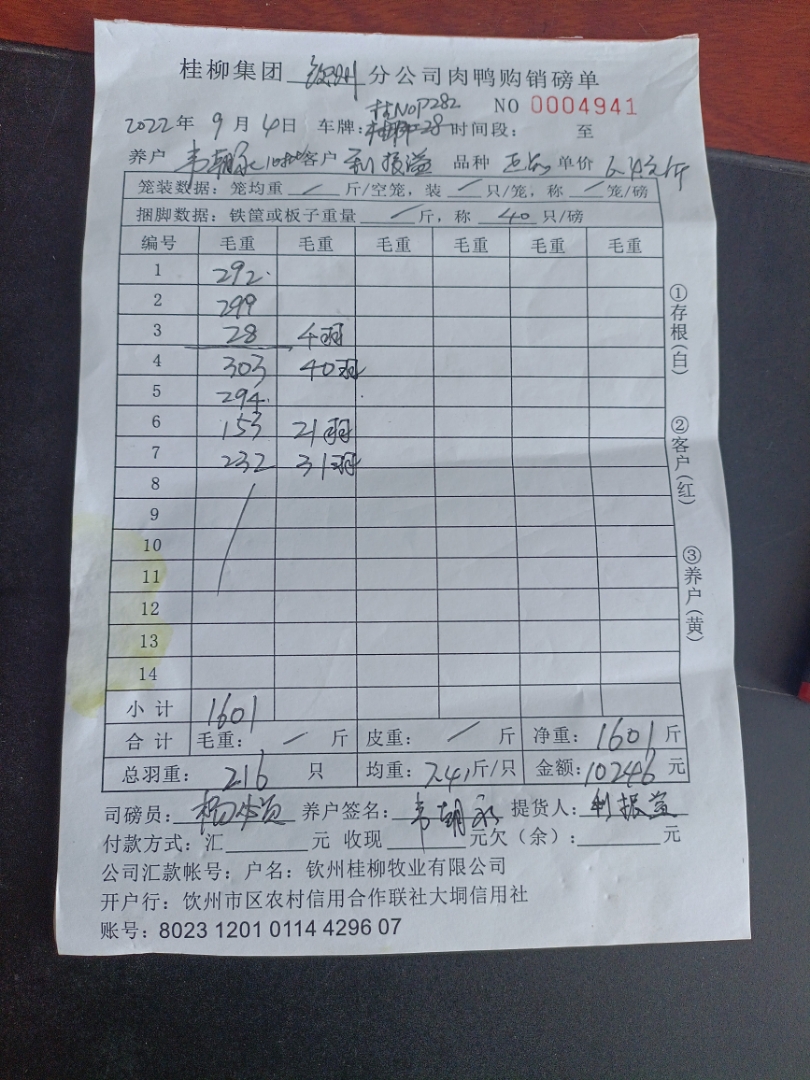 桂柳集团 钦州 分公司肉鸭购销磅单
NO 0004941
2022年 9月 4日 车牌: 桂N0P282 时间段: 至
养户 韦朝永 客户 利振溢 品种 正品 单价 6.4元/斤
笼装数据: 笼均重 / 斤/空笼, 装 / 只/笼, 称 / 笼/磅
捆脚数据: 铁筐或板子重量 / 斤, 称 40 只/磅
编号 毛重 毛重 毛重 毛重 毛重 毛重
1 292
2 299
3 28 4羽
4 303 40羽
5 294
6 153 21羽
7 232 31羽
8
9
10
11
12
13
14
小计 1601
合计 毛重: / 斤 皮重: / 斤 净重: 1601 斤
总羽重: 216 只 均重: 7.41斤/只 金额: 10246 元
司磅员: 养户签名: 韦朝永 提货人: 利振溢
付款方式: 汇 元 收现 元欠(余): 元
公司汇款帐号: 户名: 钦州桂柳牧业有限公司
开户行: 钦州市区农村信用合作联社大垌信用社
账号: 8023 1201 0114 4296 07
①存根(白)
②客户(红)
③养户(黄)